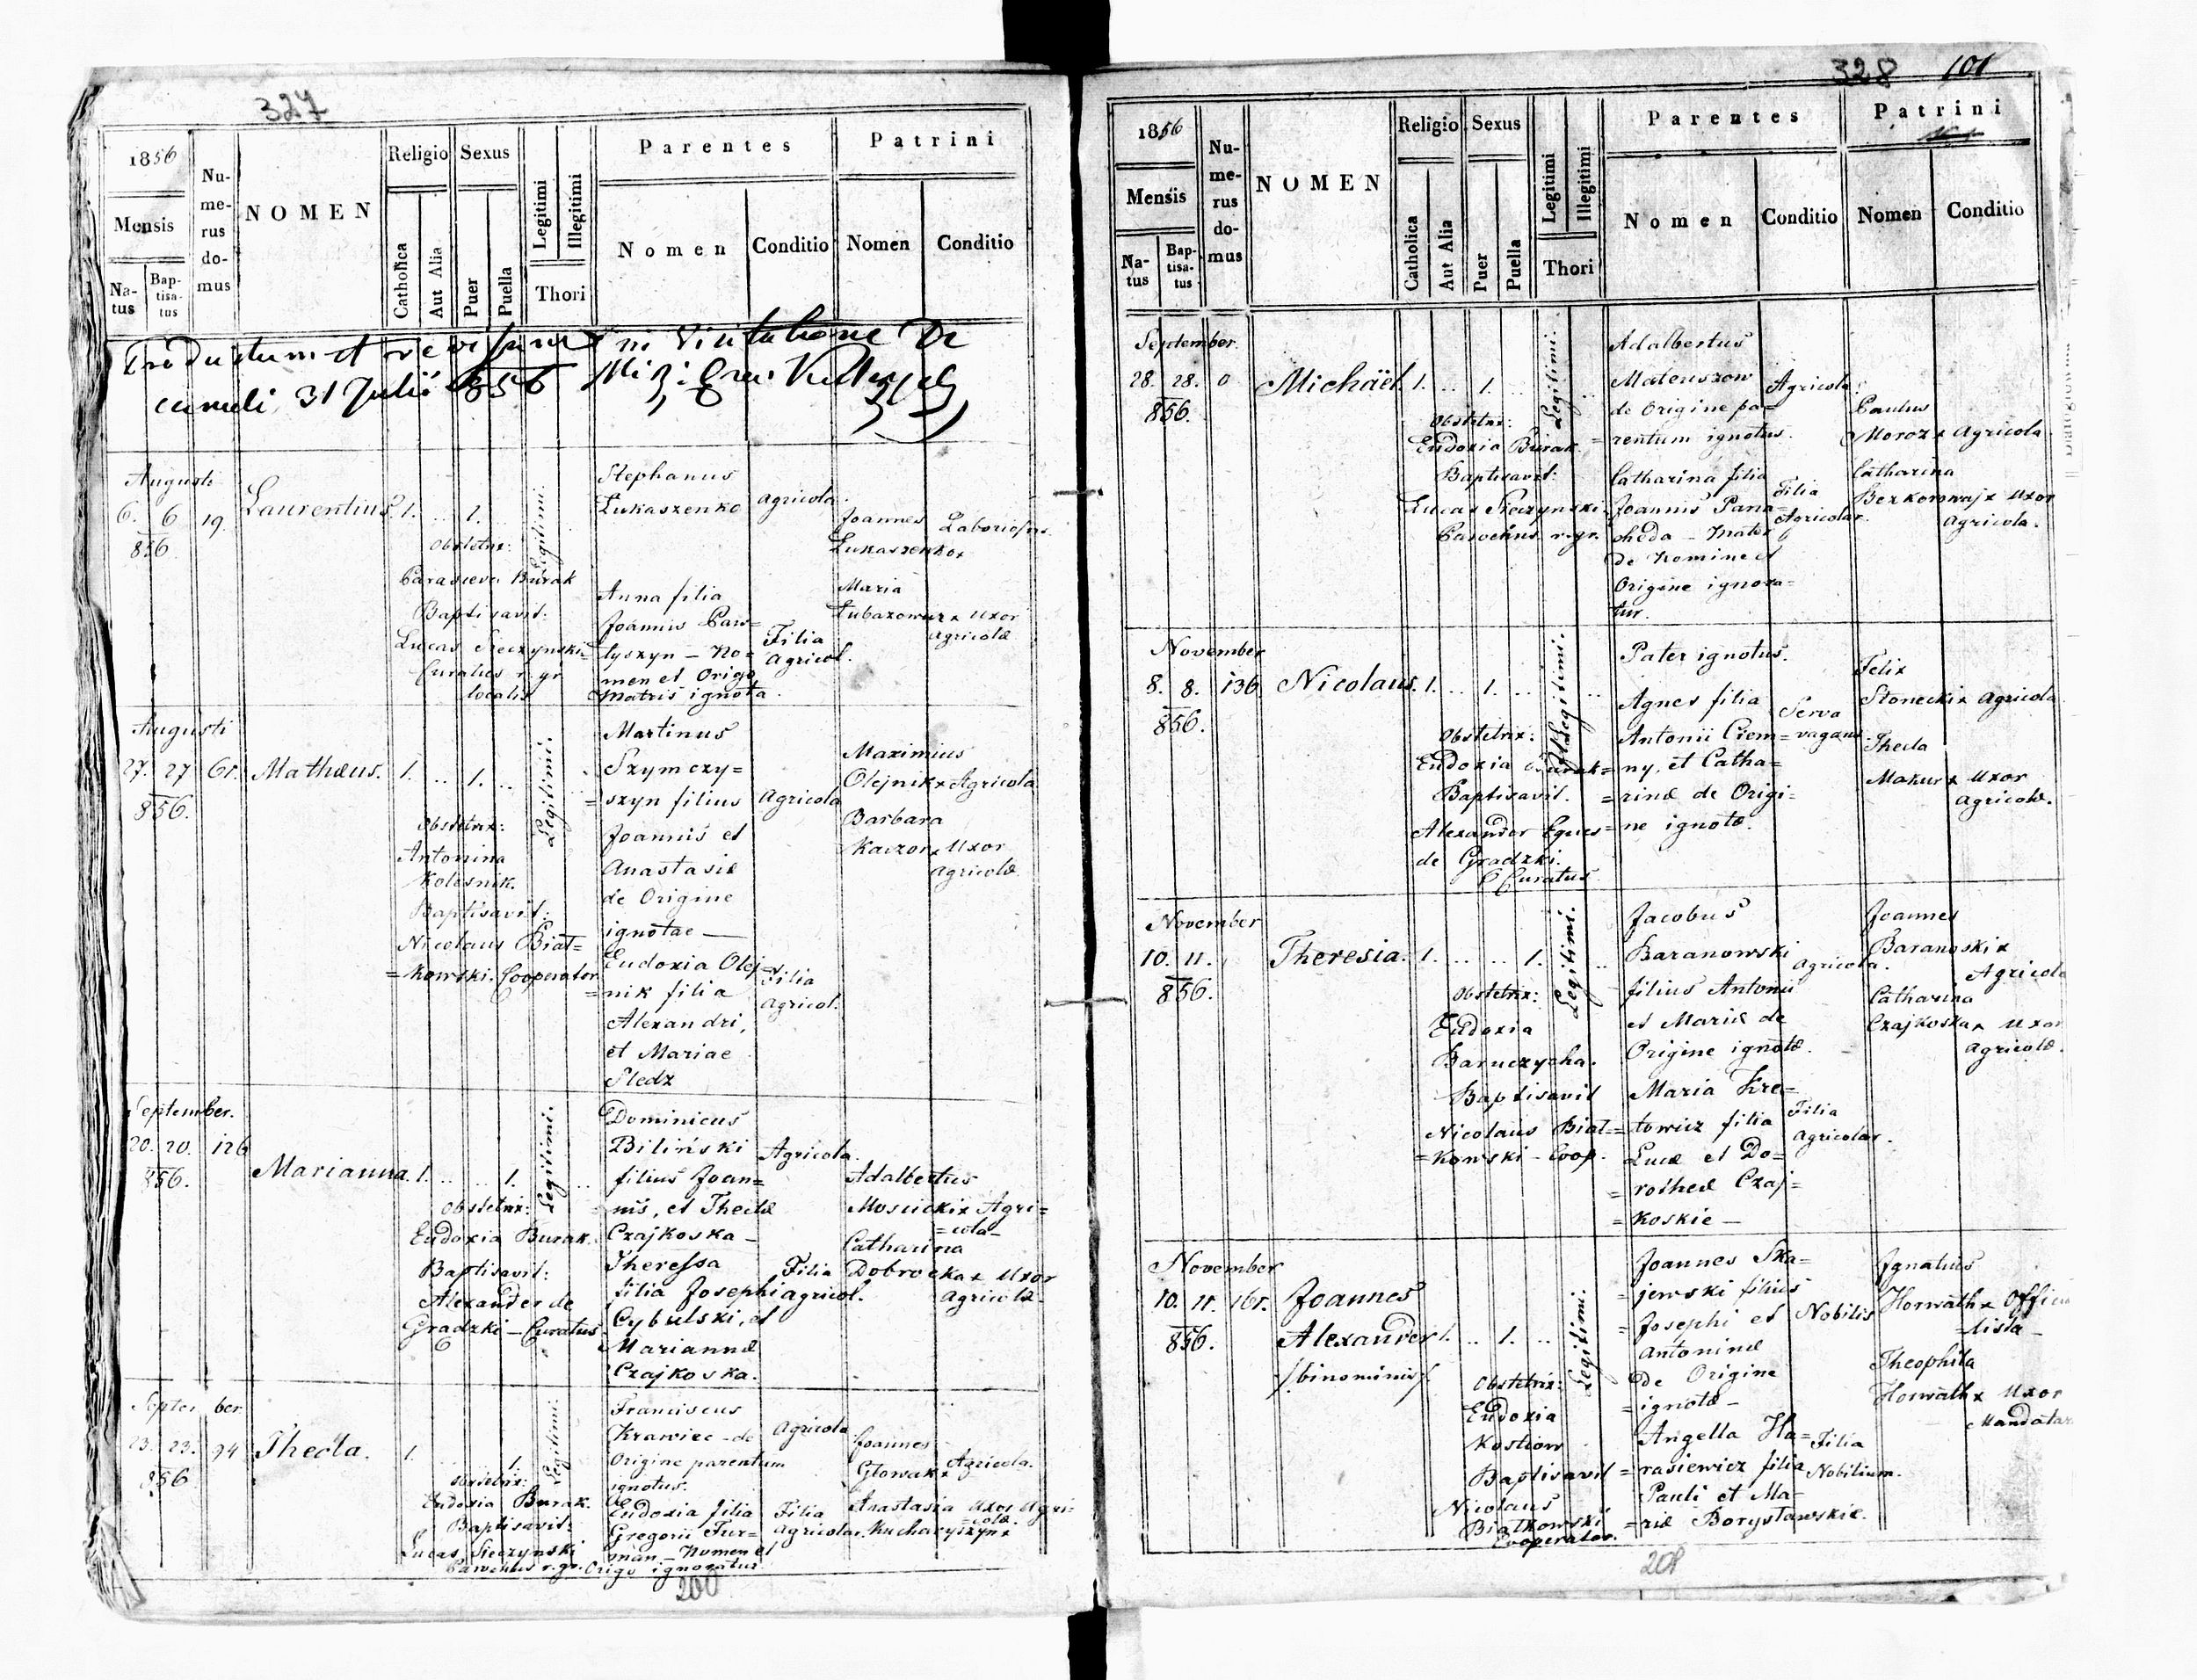 327
1856
Mensis
Natus
Baptisatus
Numerus domus
NOMEN
Religio
Catholica
Aut Alia
Sexus
Puer
Puella
Legitimi
Illegitimi
Thori
Parentes
Nomen
Conditio
Patrini
Nomen
Conditio
Productum et revisum in Visitatione De
canali 31 Julii 1856
Augusti
6. 6 19. Laurentius. 1. .. 1.
856
Legitimi.
Obstetrix:
Parasceva Burak
Baptisavit:
Lucas Sieczynski
Curatus r. gr.
localis
Stephanus
Lukaszenko
agricola.
Anna filia
Joannis Paw=
lyszyn – No=
men et Origo
Matris ignota.
Filia
Agricol.
Joannes
Lukaszenko x
Laboriosus
Maria
Lubazowur x Uxor
agricolæ
Augusti
27. 27 61. Mathæus. 1. .. 1. ..
856.
Legitimi.
Obstetrix:
Antonina
Kolesnik.
Baptisavit:
Nicolaus Biał=
=kowski. Cooperator
Martinus
Szymczy=
=szyn filius
Joannis et
Anastasiæ
de Origine
ignotae —
Agricola
Eudoxia Olej=
=nik filia
Alexandri,
et Mariae
Sledz
Filia
agricol.
Maximius
Olejnik x Agricola
Barbara
Kaczor x Uxor
agricolæ.
September.
20. 20. 126
856.
Marianna. 1. .. .. 1.
Legitimi.
Obstetrix:
Eudoxia Burak.
Baptisavit:
Alexander de
Gradzki – Curatus
Dominicus
Biliński
filius Joan=
=nis, et Theclæ
Czajkoska –
Agricola.
Theressa
filia Josephi
Cybulski, et
Mariannæ
Czajkoska.
Filia
agricol.
Adalbertus
Moscicki x Agri=
=cola–
Catharina
Dobrocka x Uxor
agricolæ.
September
23. 23. 94 Thecla. 1. 1.
856
Legitimi.
Obstetrix:
Eudoxia Burak.
Baptisavit:
Lucas Sieczynski
Parochus r. gr.
Franciscus
Krawiec – de
Origine parentum
ignotus.
Agricola
Eudoxia filia
Gregorii Fur=
man – Nomen et
Origo ignoratur
Filia
agricolar.
Joannes
Glowak x Agricola.
Anastasia Uxor Agri=
=colæ.
Kucharyszyn x
200
328 101
1856
Mensis
Natus
Baptisatus
Numerus domus
NOMEN
Religio
Catholica
Aut Alia
Sexus
Puer
Puella
Legitimi
Illegitimi
Thori
Parentes
Nomen
Conditio
Patrini
Nomen
Conditio
September.
28. 28. 0 Michaël. 1. .. 1. ..
856.
Legitimi.
Obstetrix:
Eudoxia Burak
Baptisavit:
Lucas Sieczynski
Parochus r. gr.
Adalbertus
Mateuszow
de Origine pa=
=rentum ignotus.
Agricola.
Catharina filia
Joannis Pana=
cheda – Mater
de Nomine et
Origine ignora=
tur.
Filia
Agricolar.
Paulus
Moroz x Agricola
Catharina
Bezkorowaj x Uxor
agricola.
November
8. 8. 136. Nicolaus. 1. .. 1. ..
856.
Illegitimi.
Obstetrix:
Eudoxia Burak
Baptisavit.
Alexander Eques
de Gradzki.
Curatus
Pater ignotus.
Agnes filia
Antonii Ciem=
=ny, et Catha=
=rinæ de Origi=
=ne ignotæ.
Serva
vagans
Felix
Stonecki x agricola
Thecla
Makur x Uxor
agricolæ.
November
10. 11. Theresia. 1. .. .. 1. ..
856.
Legitimi.
Obstetrix:
Eudoxia
Barnczycha.
Baptisavit
Nicolaus Biał=
=kowski – Coop.
Jacobus
Baranowski
filius Antonii
et Mariæ de
Origine ignotæ.
agricola.
Maria Kre=
=towicz filia
Lucæ et Do=
=rotheæ Czaj=
=koskie –
Filia
agricolar.
Joannes
Baranoski x
Agricola
Catharina
Czajkoska x Uxor
agricolæ.
November
10. 11. 161. Joannes
856. Alexander 1. .. 1. ..
/binominis/
Legitimi.
Obstetrix:
Eudoxia
Kostiow
Baptisavit
Nicolaus
Białkowski
Cooperator.
Joannes Ska=
=jewski filius
Josephi et
Antoninæ
de Origine
=ignotæ –
Nobilis
Angella Ha=
=rasiewicz filia
Pauli et Ma–
=riæ Borysławskie.
Filia
Nobilium.
Ignatius
Horwath x Offici
=lista–
Theophila
Horwath x Uxor
Mandatar
208